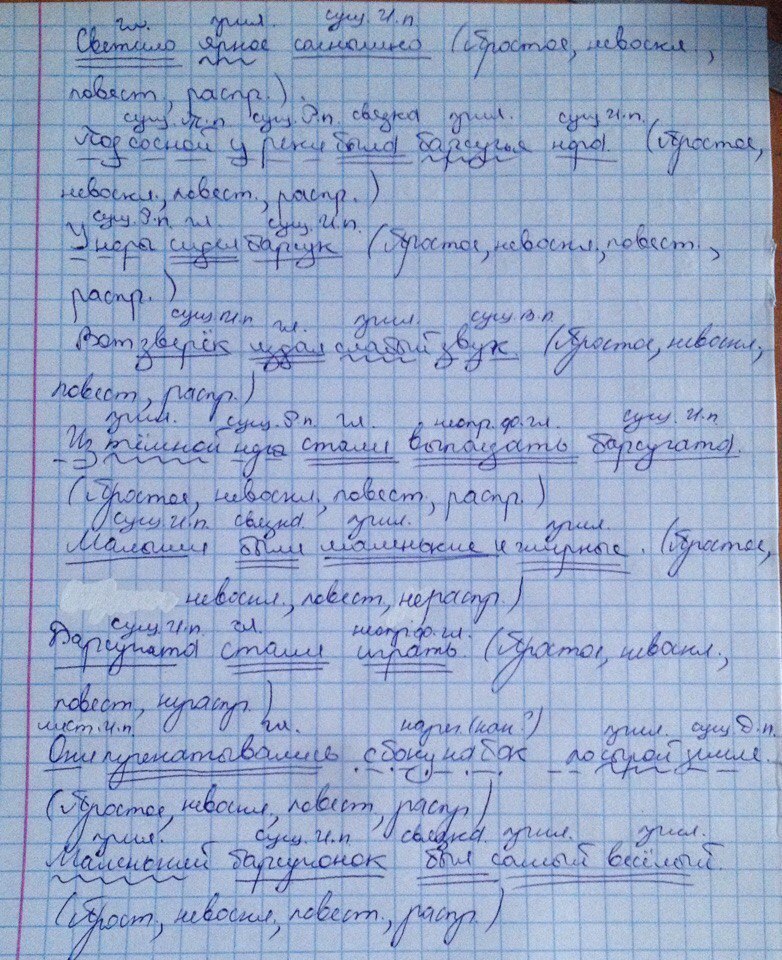 гл. прил. сущ. И.п
Светило яркое солнышко (Простое, невоскл,
повест, распр.).
сущ. Т.п сущ. Р.п. связка прил. сущ. И.п.
Под сосной у реки была барсучья нора. (Простое,
невоскл., повест., распр.)
сущ. Р.п. гл. сущ. И.п.
У норы сидел барсук (Простое, невоскл, повест.,
распр.)
сущ. И.п. гл. прил. сущ. В.п
Вот зверёк издал слабый звук (Простое, невоскл,
повест, распр.)
прил. сущ. Р.п. гл. неопр.ф.гл. сущ. И.п
Из тёмной норы стали выползать барсучата.
(Простое, невоскл, повест, распр.)
сущ. И.п. связка прил. прил.
Малыши были маленькие и жирные. (Простое,
невоскл., повест, нераспр.)
сущ. И.п. гл. неопр.ф.гл.
Барсучата стали играть. (Простое, невоскл.,
повест, нераспр.)
мест. И.п гл. нареч. (как?) прил. сущ. Д.п.
Они перекатывались с боку на бок по сырой земле.
(Простое, невоскл, повест, распр)
прил. сущ. И.п связка прил. прил.
Маленький барсучонок был самый весёлый.
(Прост, невоскл, повест., распр.)